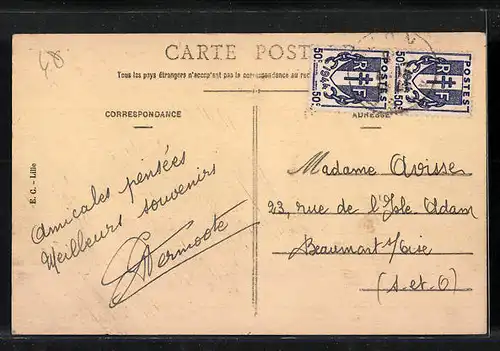 48
CARTE POST
Tous les pays étrangers n'acceptent pas la correspondance au
CORRESPONDANCE
ADRESSE
50c 1944 50c
RF
POSTES
50c 1944 50c
RF
POSTES
E. C. - Lille
Amicales pensées
Meilleurs souvenirs
Madame Avisse
23, rue de l'Isle Adam
Beaumont s/Oise
(S-et-O)